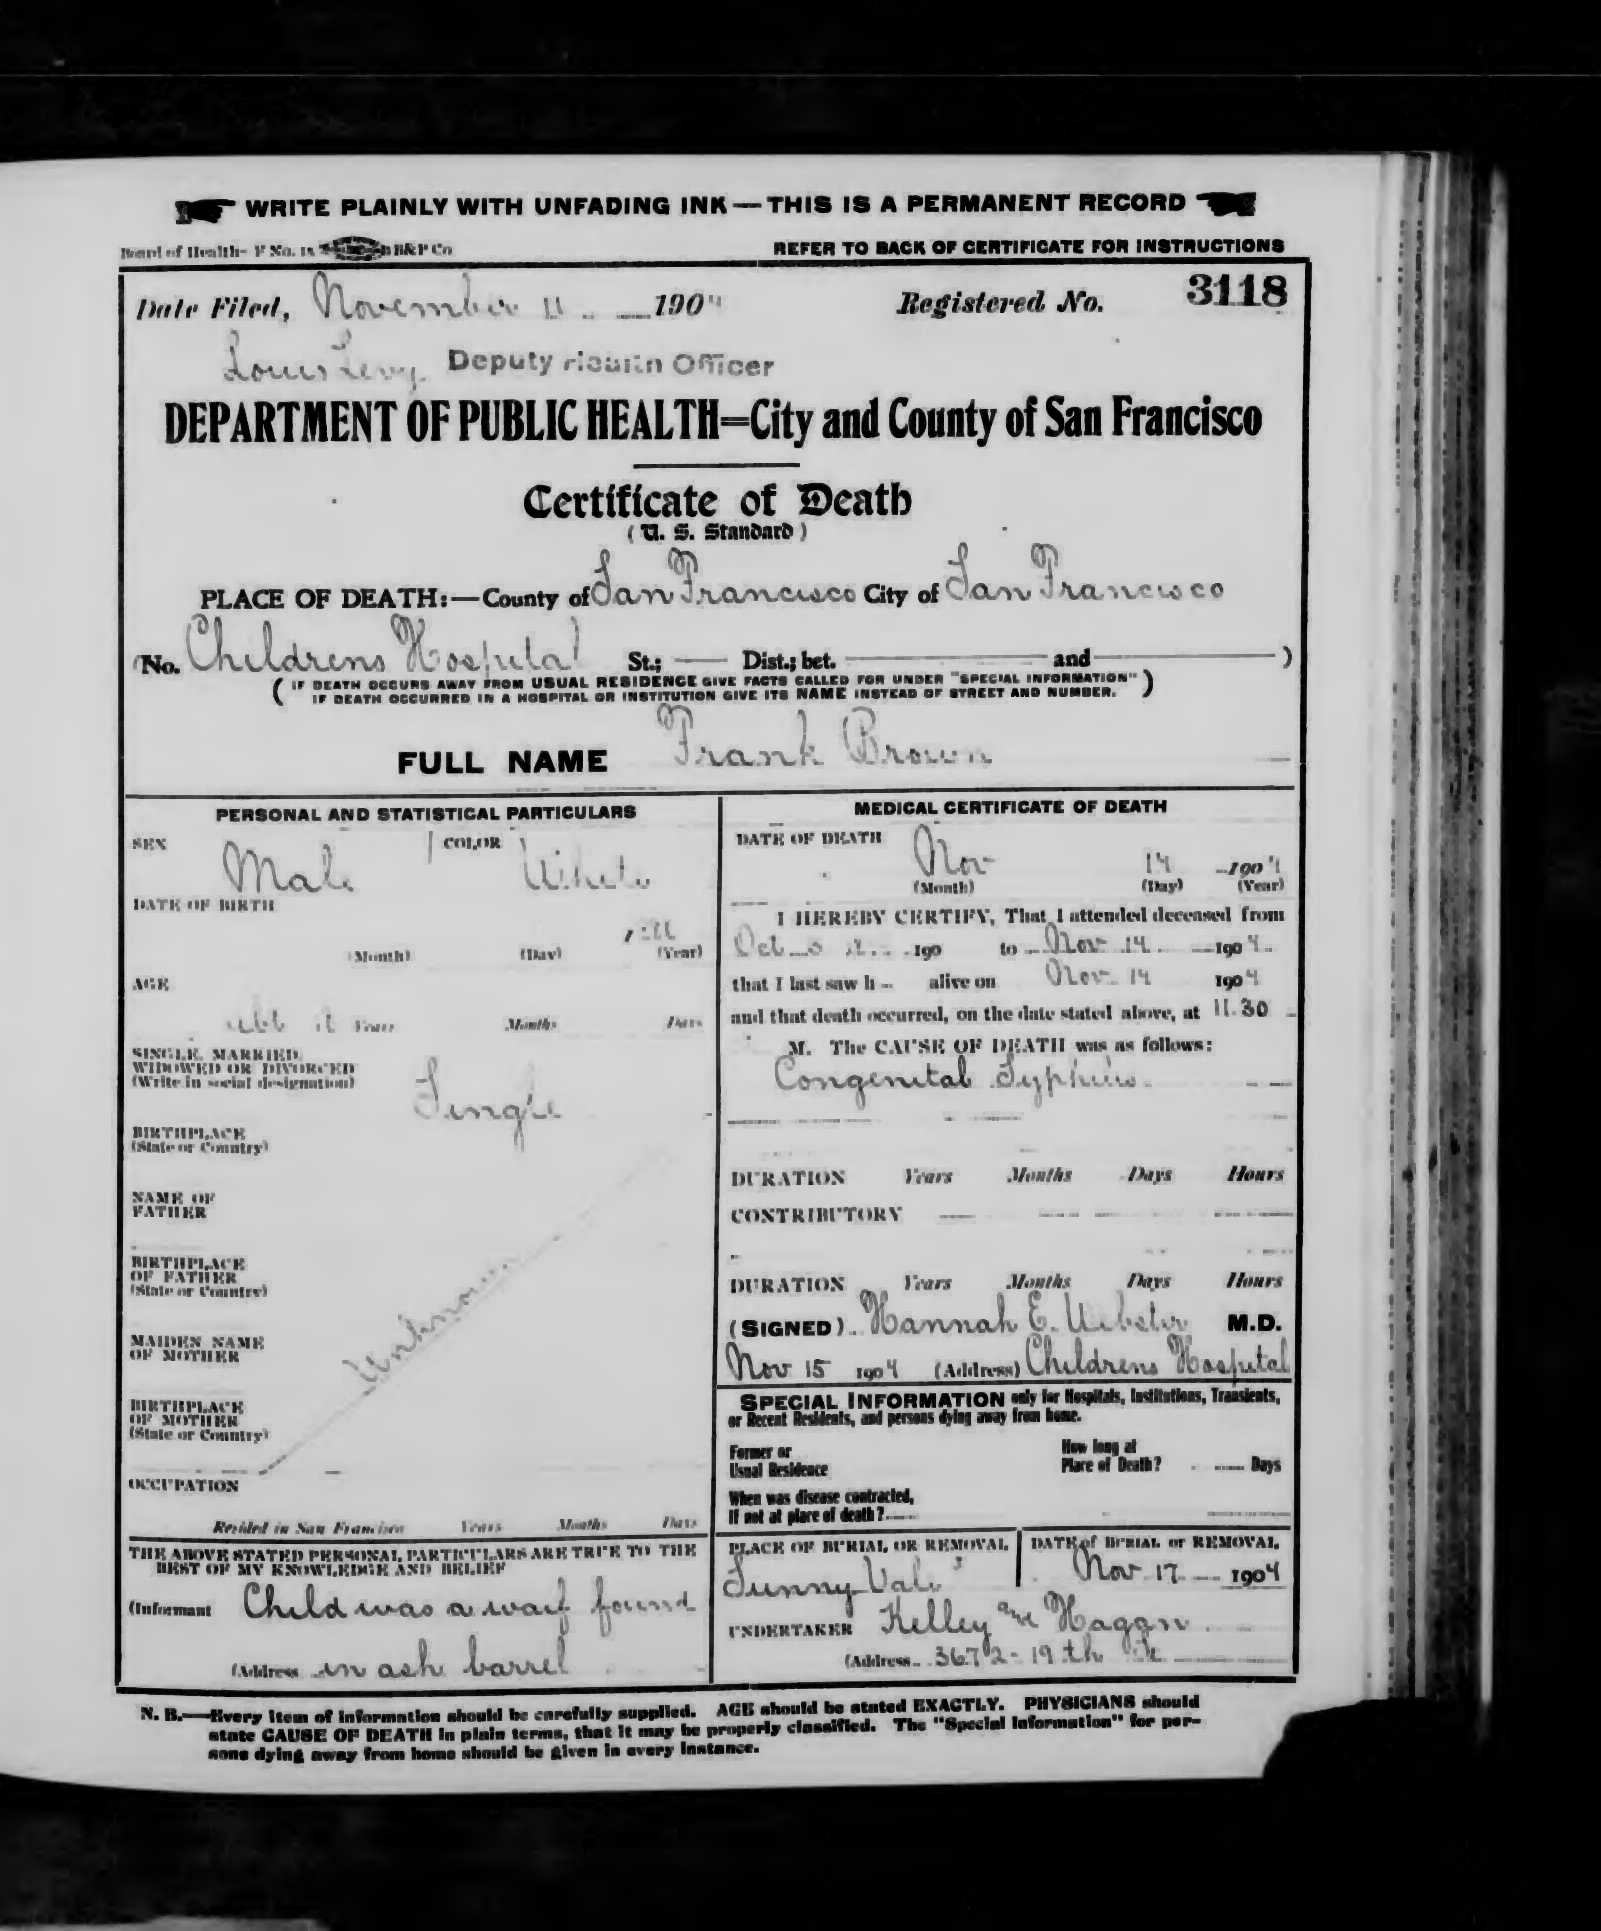 WRITE PLAINLY WITH UNFADING INK — THIS IS A PERMANENT RECORD
Board of Health- F No. B&P Co REFER TO BACK OF CERTIFICATE FOR INSTRUCTIONS
Date Filed, November 1904 Registered No. 3118
Louis Levy Deputy Health Officer
DEPARTMENT OF PUBLIC HEALTH=City and County of San Francisco
Certificate of Death
( U. S. Standard )
PLACE OF DEATH:—County of San Francisco City of San Francisco
(No. Childrens Hospital St.; — Dist.; bet. — and — )
( IF DEATH OCCURS AWAY FROM USUAL RESIDENCE GIVE FACTS CALLED FOR UNDER "SPECIAL INFORMATION"
IF DEATH OCCURRED IN A HOSPITAL OR INSTITUTION GIVE ITS NAME INSTEAD OF STREET AND NUMBER. )
FULL NAME Frank Brown
PERSONAL AND STATISTICAL PARTICULARS
SEX Male COLOR White
DATE OF BIRTH
(Month) (Day) (Year)
AGE
abt Years Months Days
SINGLE, MARRIED,
WIDOWED OR DIVORCED
(Write in social designation) Single
BIRTHPLACE
(State or Country)
NAME OF
FATHER
BIRTHPLACE
OF FATHER
(State or Country)
Unknown
MAIDEN NAME
OF MOTHER
BIRTHPLACE
OF MOTHER
(State or Country)
OCCUPATION
Resided in San Francisco Years Months Days
THE ABOVE STATED PERSONAL PARTICULARS ARE TRUE TO THE
BEST OF MY KNOWLEDGE AND BELIEF
(Informant Child was a waif found
(Address in ash barrel
MEDICAL CERTIFICATE OF DEATH
DATE OF DEATH
Nov 14 1904
(Month) (Day) (Year)
I HEREBY CERTIFY, That I attended deceased from
Oct 190 to Nov 14 1904
that I last saw h alive on Nov 14 1904
and that death occurred, on the date stated above, at 11.30
M. The CAUSE OF DEATH was as follows:
Congenital Syphilis
DURATION Years Months Days Hours
CONTRIBUTORY
DURATION Years Months Days Hours
(SIGNED) Hannah E. Webster M.D.
Nov 15 1904 (Address) Childrens Hospital
SPECIAL INFORMATION only for Hospitals, Institutions, Transients,
or Recent Residents, and persons dying away from home.
Former or
Usual Residence
How long at
Place of Death? Days
When was disease contracted,
If not at place of death?
PLACE OF BURIAL OR REMOVAL
Sunny Vale
DATE of BURIAL or REMOVAL
Nov 17 1904
UNDERTAKER Kelley and Hagan
(Address 3672 - 19th St
N. B.—Every item of information should be carefully supplied. AGE should be stated EXACTLY. PHYSICIANS should
state CAUSE OF DEATH in plain terms, that it may be properly classified. The "Special Information" for per-
sons dying away from home should be given in every instance.